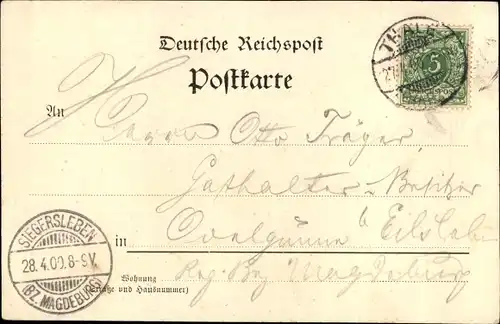 Deutsche Reichspost
Postkarte
THALE
5
An
Herrn Otto Träger,
Gasthalter-Besitzer
in Ovelgünne b Eilsleben
Reg. Bez Magdeburg
Wohnung
(Straße und Hausnummer)
SIEGERSLEBEN
28.4.00.8-9V.
(BZ. MAGDEBURG)